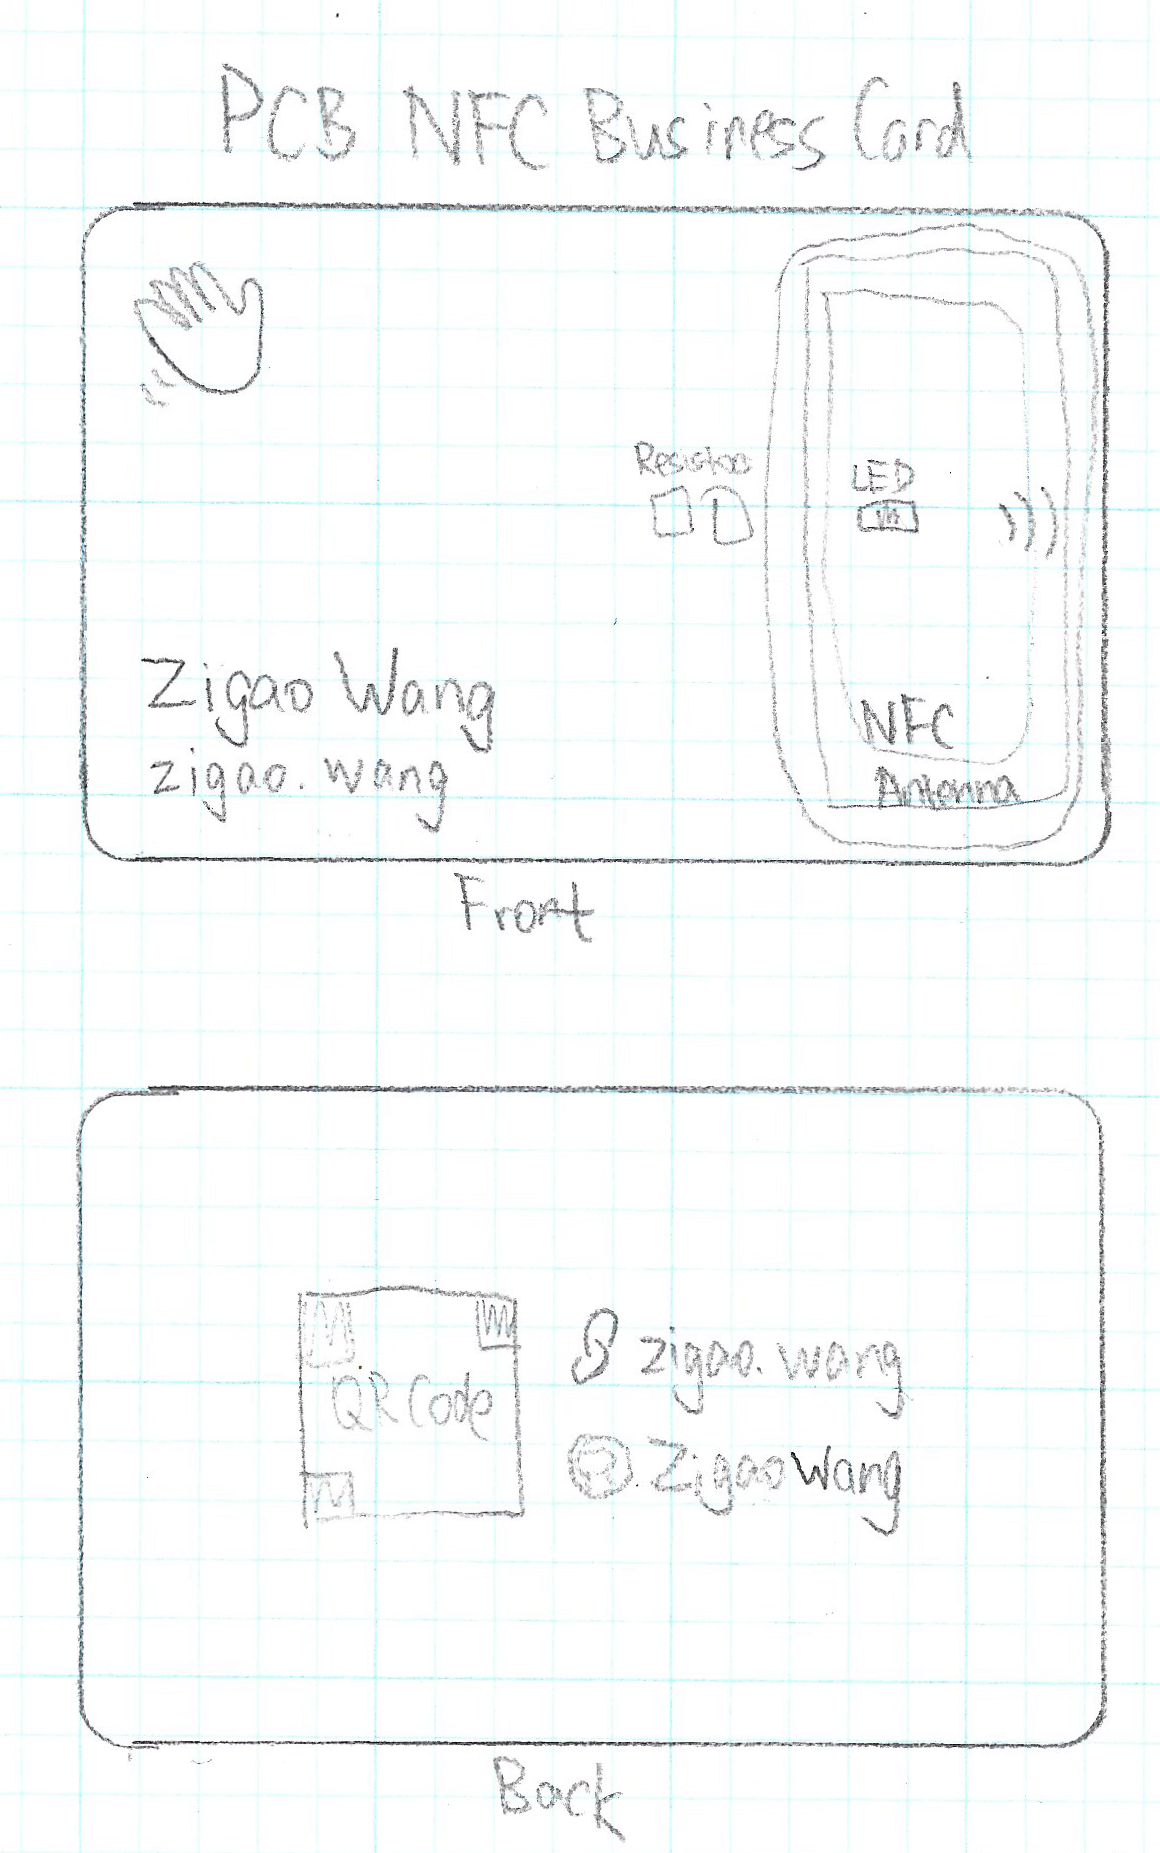 PCB NFC Business Card
Resistor
LED
Zigao Wang
zigao.wang
NFC
Antenna
Front
QR Code
zigao.wang
ZigaoWang
Back